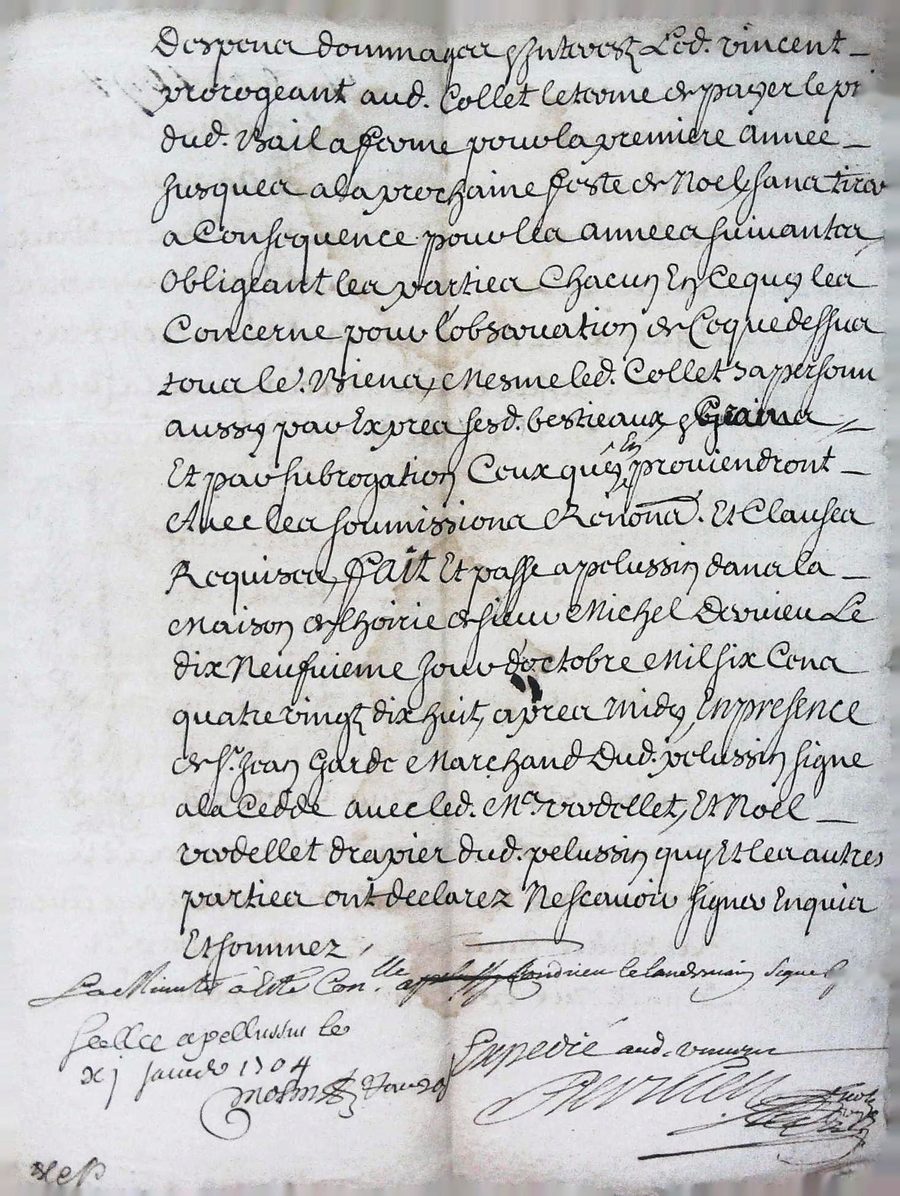 Despens dommages & Interest Led. vincent
prorogeant aud. Collet le terme de payer le pr
dud. Bail a ferme pour la premiere Année
Jusques a la prochaine feste de Noel, sans tirer
a Consequence pour les années suivantes
Obligeant les parties Chacun En Ce quy les
Concerne pour l'observation de Ce que dessus
tous le. Biens, Mesme led. Collet sa personn
aussy par Expres sesd. bestieaux & Grains
Et par subrogation Ceux quy En proviendront
Avec les soumissions Renonōn. Et Clauses
Requises, fait Et passé a pelussin dans la
Maison de l'hoirie de sieur Michel Dervieu Le
dix Neufvieme Jour d'octobre Mil six Cens
quatre vingt dix huit, apres Midy, En presence
de Sr. Jean Garde Marchand Dud. pelussin signe
a la Cedde avec led. Me. verdellet, Et Noel
verdellet drapier dud. pelussin quy Et les autres
parties ont declarez Ne scavoir signer Enquis
Et sommez
La Minute à esté Con.lle Condrieu le landemain Signe
Scellé a pellussin le
xj janvier 1704
Expedié aud. vincent
Dervieu